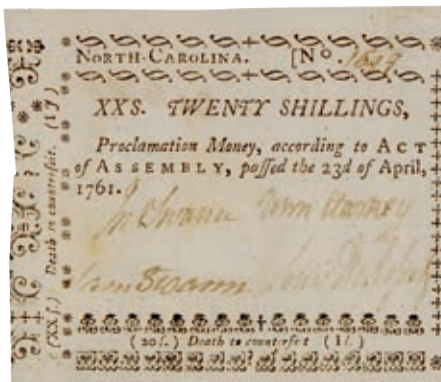 NORTH-CAROLINA. [No. 1699
XXS. TWENTY SHILLINGS,
Proclamation Money, according to ACT
of ASSEMBLY, paſſed the 23d of April,
1761.
Swann
Sam Swann
(20ſ.) Death to counterfeit (1l.)
(XXſ.) Death to counterfeit. (1l)